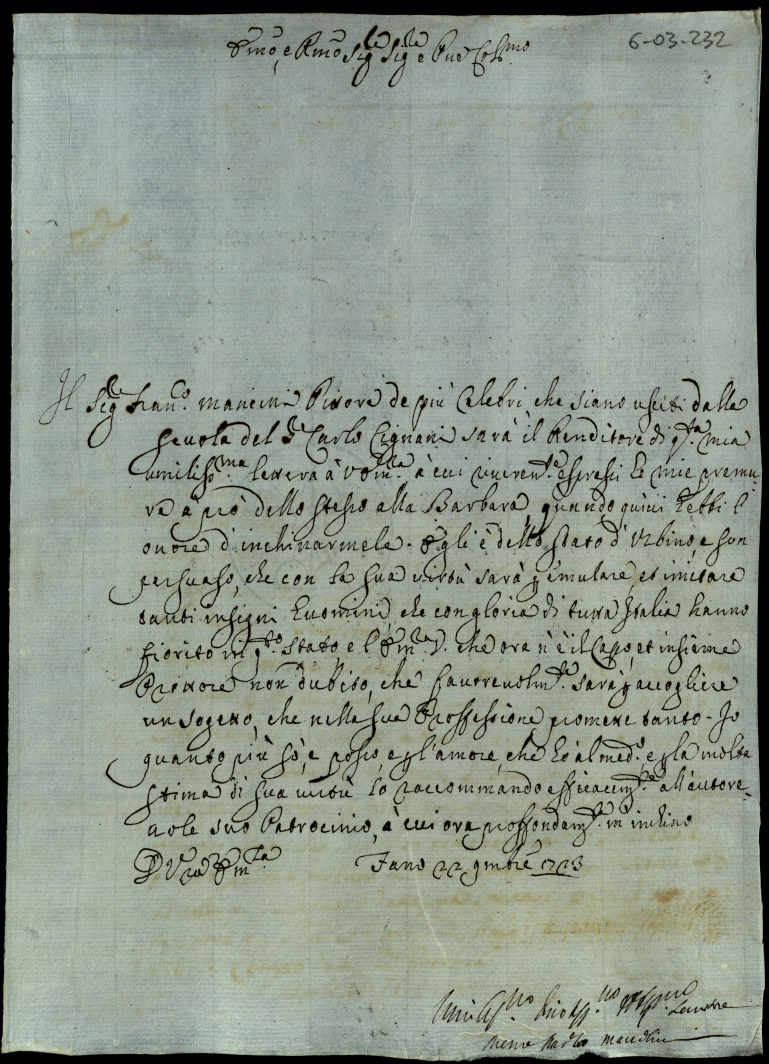 6-03-232
Em̃o, e Rm̃o Sig.re Sig.re e Pne Col.mo
Il Sig.re Fran.co Mancini Pittore de più Celebri, che siano usciti dalla
scuola del S.r Carlo Cignani sarà il Renditore di q.ta mia
umiliss.ma lettera à V. Em.za à cui riveren.te espressi le mie premu-
re a prò dello stesso alla Barbara, quando quivi hebbi l'
onore d'inchinarmele. Egli è dello stato d'Urbino, e son
persuaso, che con la sua virtù sarà p emulare, et imitare
tanti insigni huomini, che con gloria di tutta Italia hanno
fiorito in q.to stato e l'Em.za V. che ora n'è il Capo, et insieme
Prottore non dubito, che favorevolm.te sarà p accogliere
un sogetto, che nella sua Proffessione promette tanto. Io
quanto più sò, e posso, e p l'amore, che hò al med.o e p la molta
stima di sua virtù lo raccommando efficacem.te all'autore-
vole suo Patrocinio, à cui ora proffondam.te m'inchino
D V.ra Em.za Fano 22 9mbre 1723
Umiliss.mo Devotiss.mo Obblig.mo Servitore